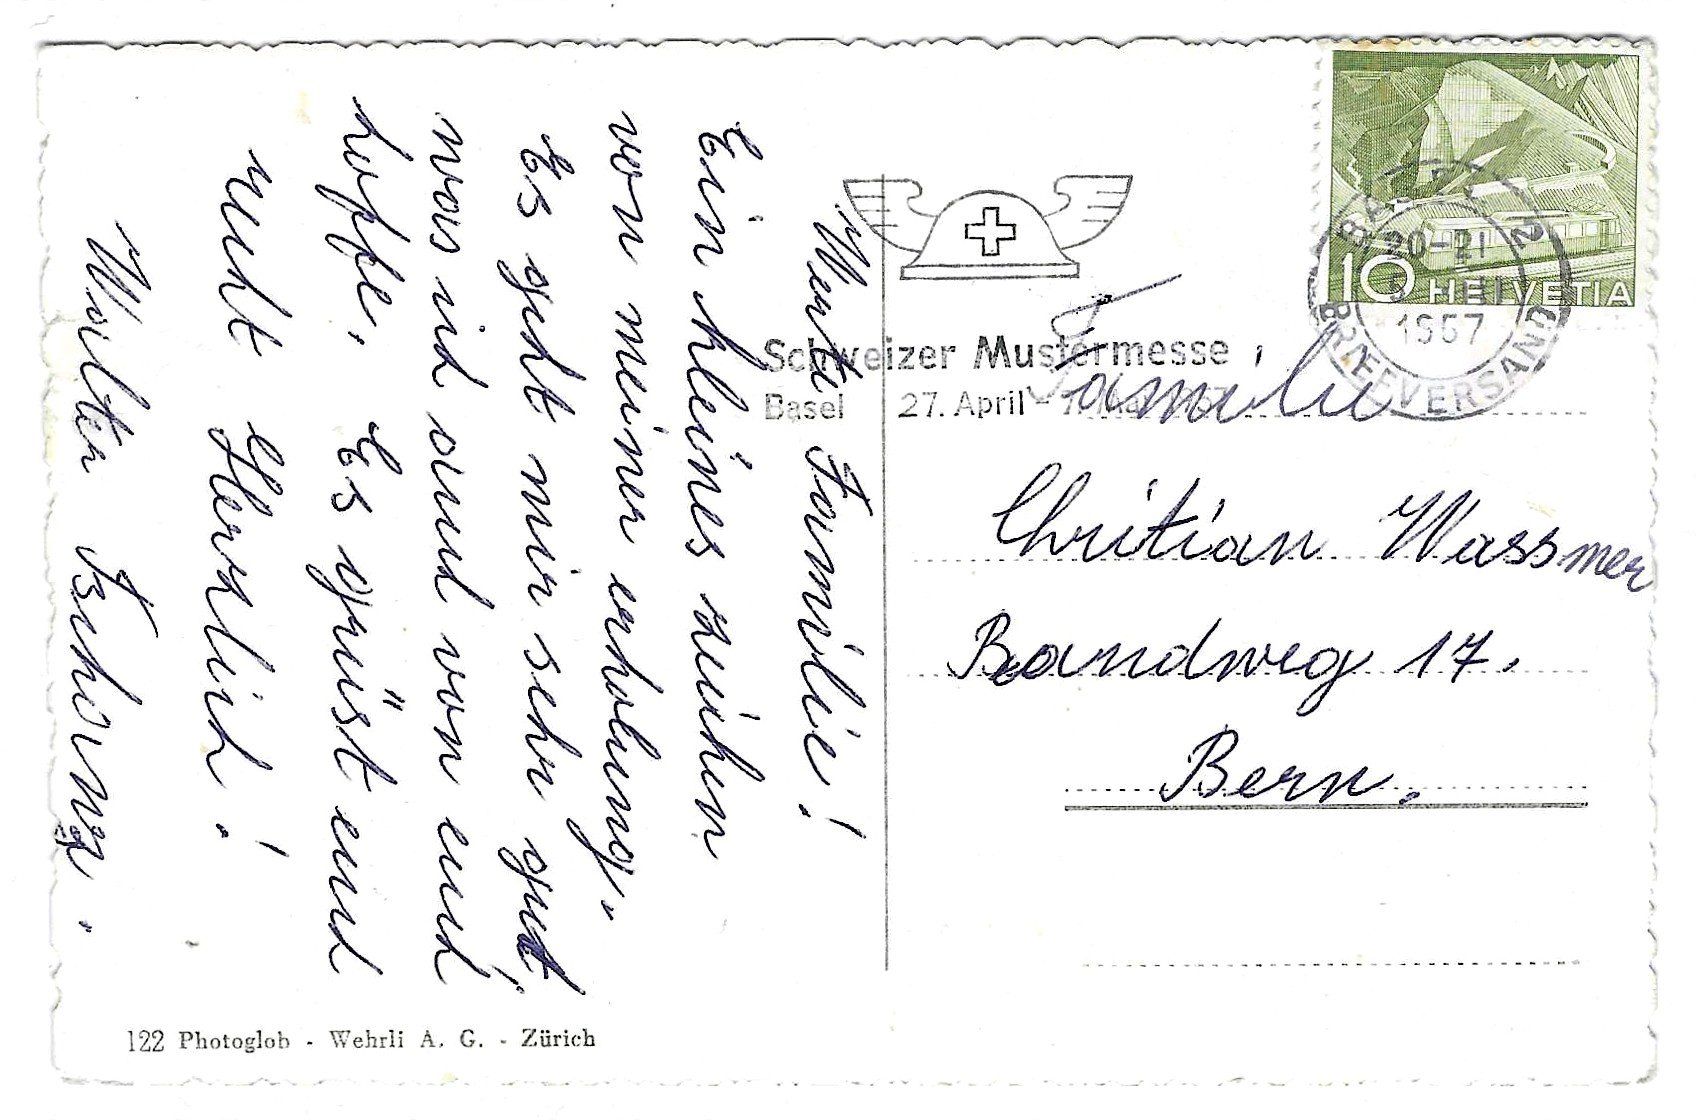 Werte Familie!
Ein kleines zeichen
von meiner erholung.
Es geht mir sehr gut,
was ich auch von euch
hoffe. Es grüst euch
recht Herzlich!
Walter
122 Photoglob - Wehrli A. G. - Zürich
Schweizer Mustermesse
Basel 27. April - 7. Mai 1957
10 HELVETIA
BASEL 2
20-21
1957
BRIEFVERSAND
Familie
Chritian Wassmer
Bandweg 17.
Bern.